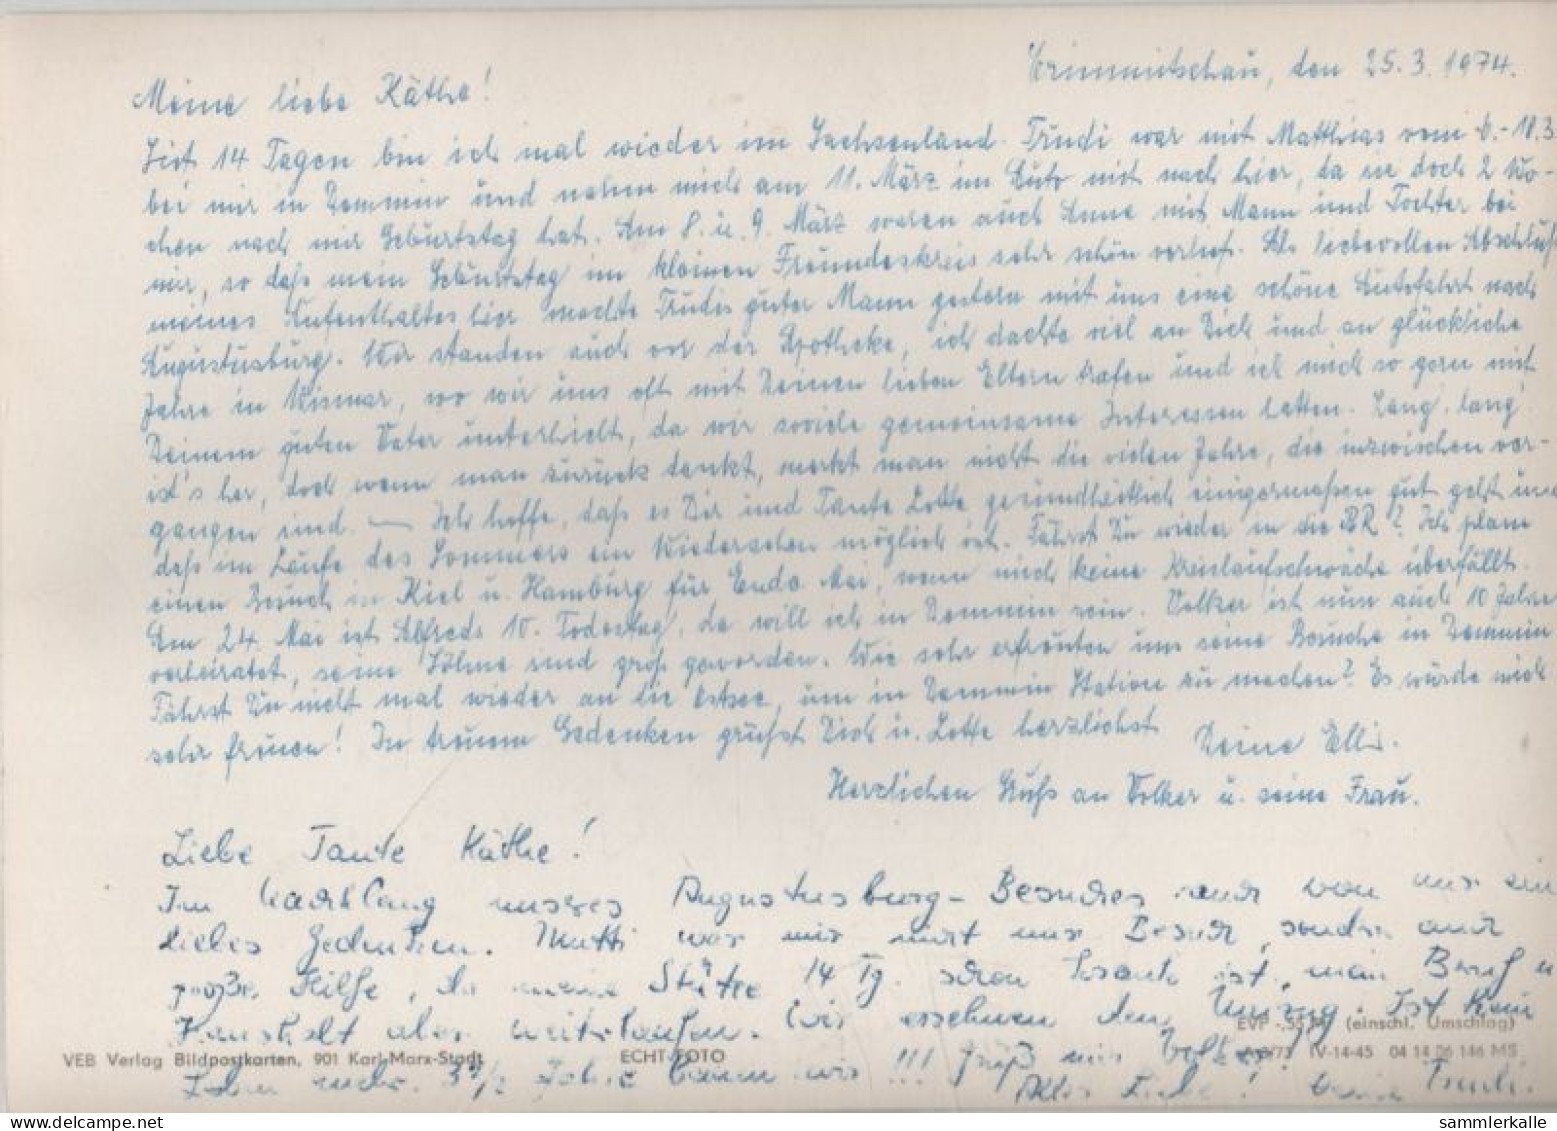 Crimmitschau, den 25.3.1974.
Meine liebe Käthe!
Seit 14 Tagen bin ich mal wieder im Sachsenland. Trudi war mit Matthias vom 6.-10.3.
bei mir in Demmin und nahm mich am 11. März im Auto mit nach hier, da sie doch 2 Wo-
chen nach mir Geburtstag hat. Am 8. u. 9. März waren auch Anne mit Mann und Tochter bei
mir, so daß mein Geburtstag im kleinen Freundeskreis sehr schön verlief. Als liebevollen Abschluß
meines Aufenthaltes hier machte Trudis guter Mann gestern mit uns eine schöne Autofahrt nach
Augustusburg. Wir standen auch vor der Apotheke, ich dachte viel an Dich und an glückliche
Jahre in Wismar, wo wir uns oft mit Deinen lieben Eltern trafen und ich mich so gern mit
Deinem guten Vater unterhielt, da wir soviele gemeinsame Interessen hatten. Lang, lang
ist's her, doch wenn man zurück denkt, merkt man nicht die vielen Jahre, die inzwischen ver-
gangen sind. — Ich hoffe, daß es Dir und Tante Lotte gesundheitlich einigermaßen gut geht und
daß im Laufe des Sommers ein Wiedersehen möglich ist. Fährst Du wieder in die BR? Ich plane
einen Besuch in Kiel u. Hamburg für Ende Mai, wenn mich keine Kreislaufschwäche überfällt.
Am 24. Mai ist Alfreds 10. Todestag, da will ich in Demmin sein. Volker ist nun auch 10 Jahre
verheiratet, seine Söhne sind groß geworden. Wie sehr erfreuten uns seine Besuche in Demmin.
Fährst Du nicht mal wieder an die Ostsee, um in Demmin Station zu machen? Es würde mich
sehr freuen! In treuem Gedenken grüßt Dich u. Lotte herzlichst
Deine Elli.
Herzlichen Gruß an Volker u. seine Frau.
Liebe Tante Käthe!
Im Nachklang unseres Augustusburg-Besuches auch von mir ein
liebes Gedenken. Mutti war mir nicht nur Besuch, sondern auch
große Hilfe, da meine Stütze 14 Tg. schon krank ist, mein Beruf u
Haushalt aber weiterlaufen. Wir ersehnen den Umzug. Ist kein
Leben mehr. 3 1/2 Jahre bauen wir !!! Grüß mir Volker
Alles Liebe! Deine Trudi.
VEB Verlag Bildpostkarten, 901 Karl-Marx-Stadt
ECHT FOTO
EVP -.55 M (einschl. Umschlag)
IV-14-45 04 14 06 146 MS
sammlerkalle